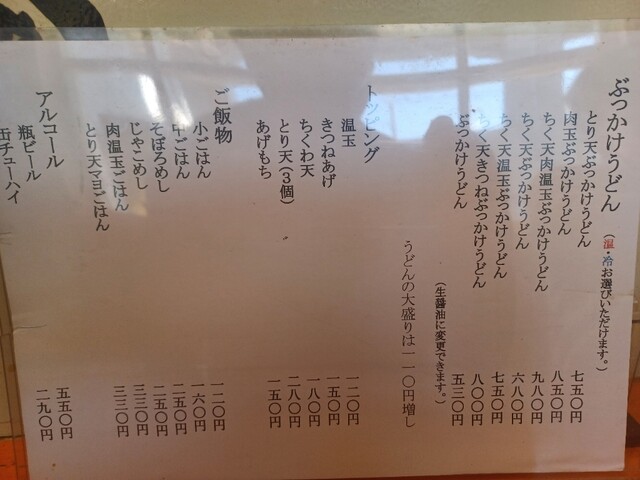 ぶっかけうどん（温・冷お選びいただけます。）
とり天ぶっかけうどん 七五〇円
肉玉ぶっかけうどん 八五〇円
ちく天肉温玉ぶっかけうどん 九八〇円
ちく天ぶっかけうどん 六八〇円
ちく天温玉ぶっかけうどん 七五〇円
ちく天きつねぶっかけうどん 八〇〇円
ぶっかけうどん 五三〇円
（生醤油に変更できます。）
うどんの大盛りは一一〇円増し
トッピング
温玉 一二〇円
きつねあげ 一五〇円
ちくわ天 一八〇円
とり天（3個） 二八〇円
あげもち 一五〇円
ご飯物
小ごはん 一二〇円
中ごはん 一六〇円
そぼろめし 二五〇円
じゃこめし 二五〇円
肉温玉ごはん 三三〇円
とり天マヨごはん 三三〇円
アルコール
瓶ビール 五五〇円
缶チューハイ 二九〇円